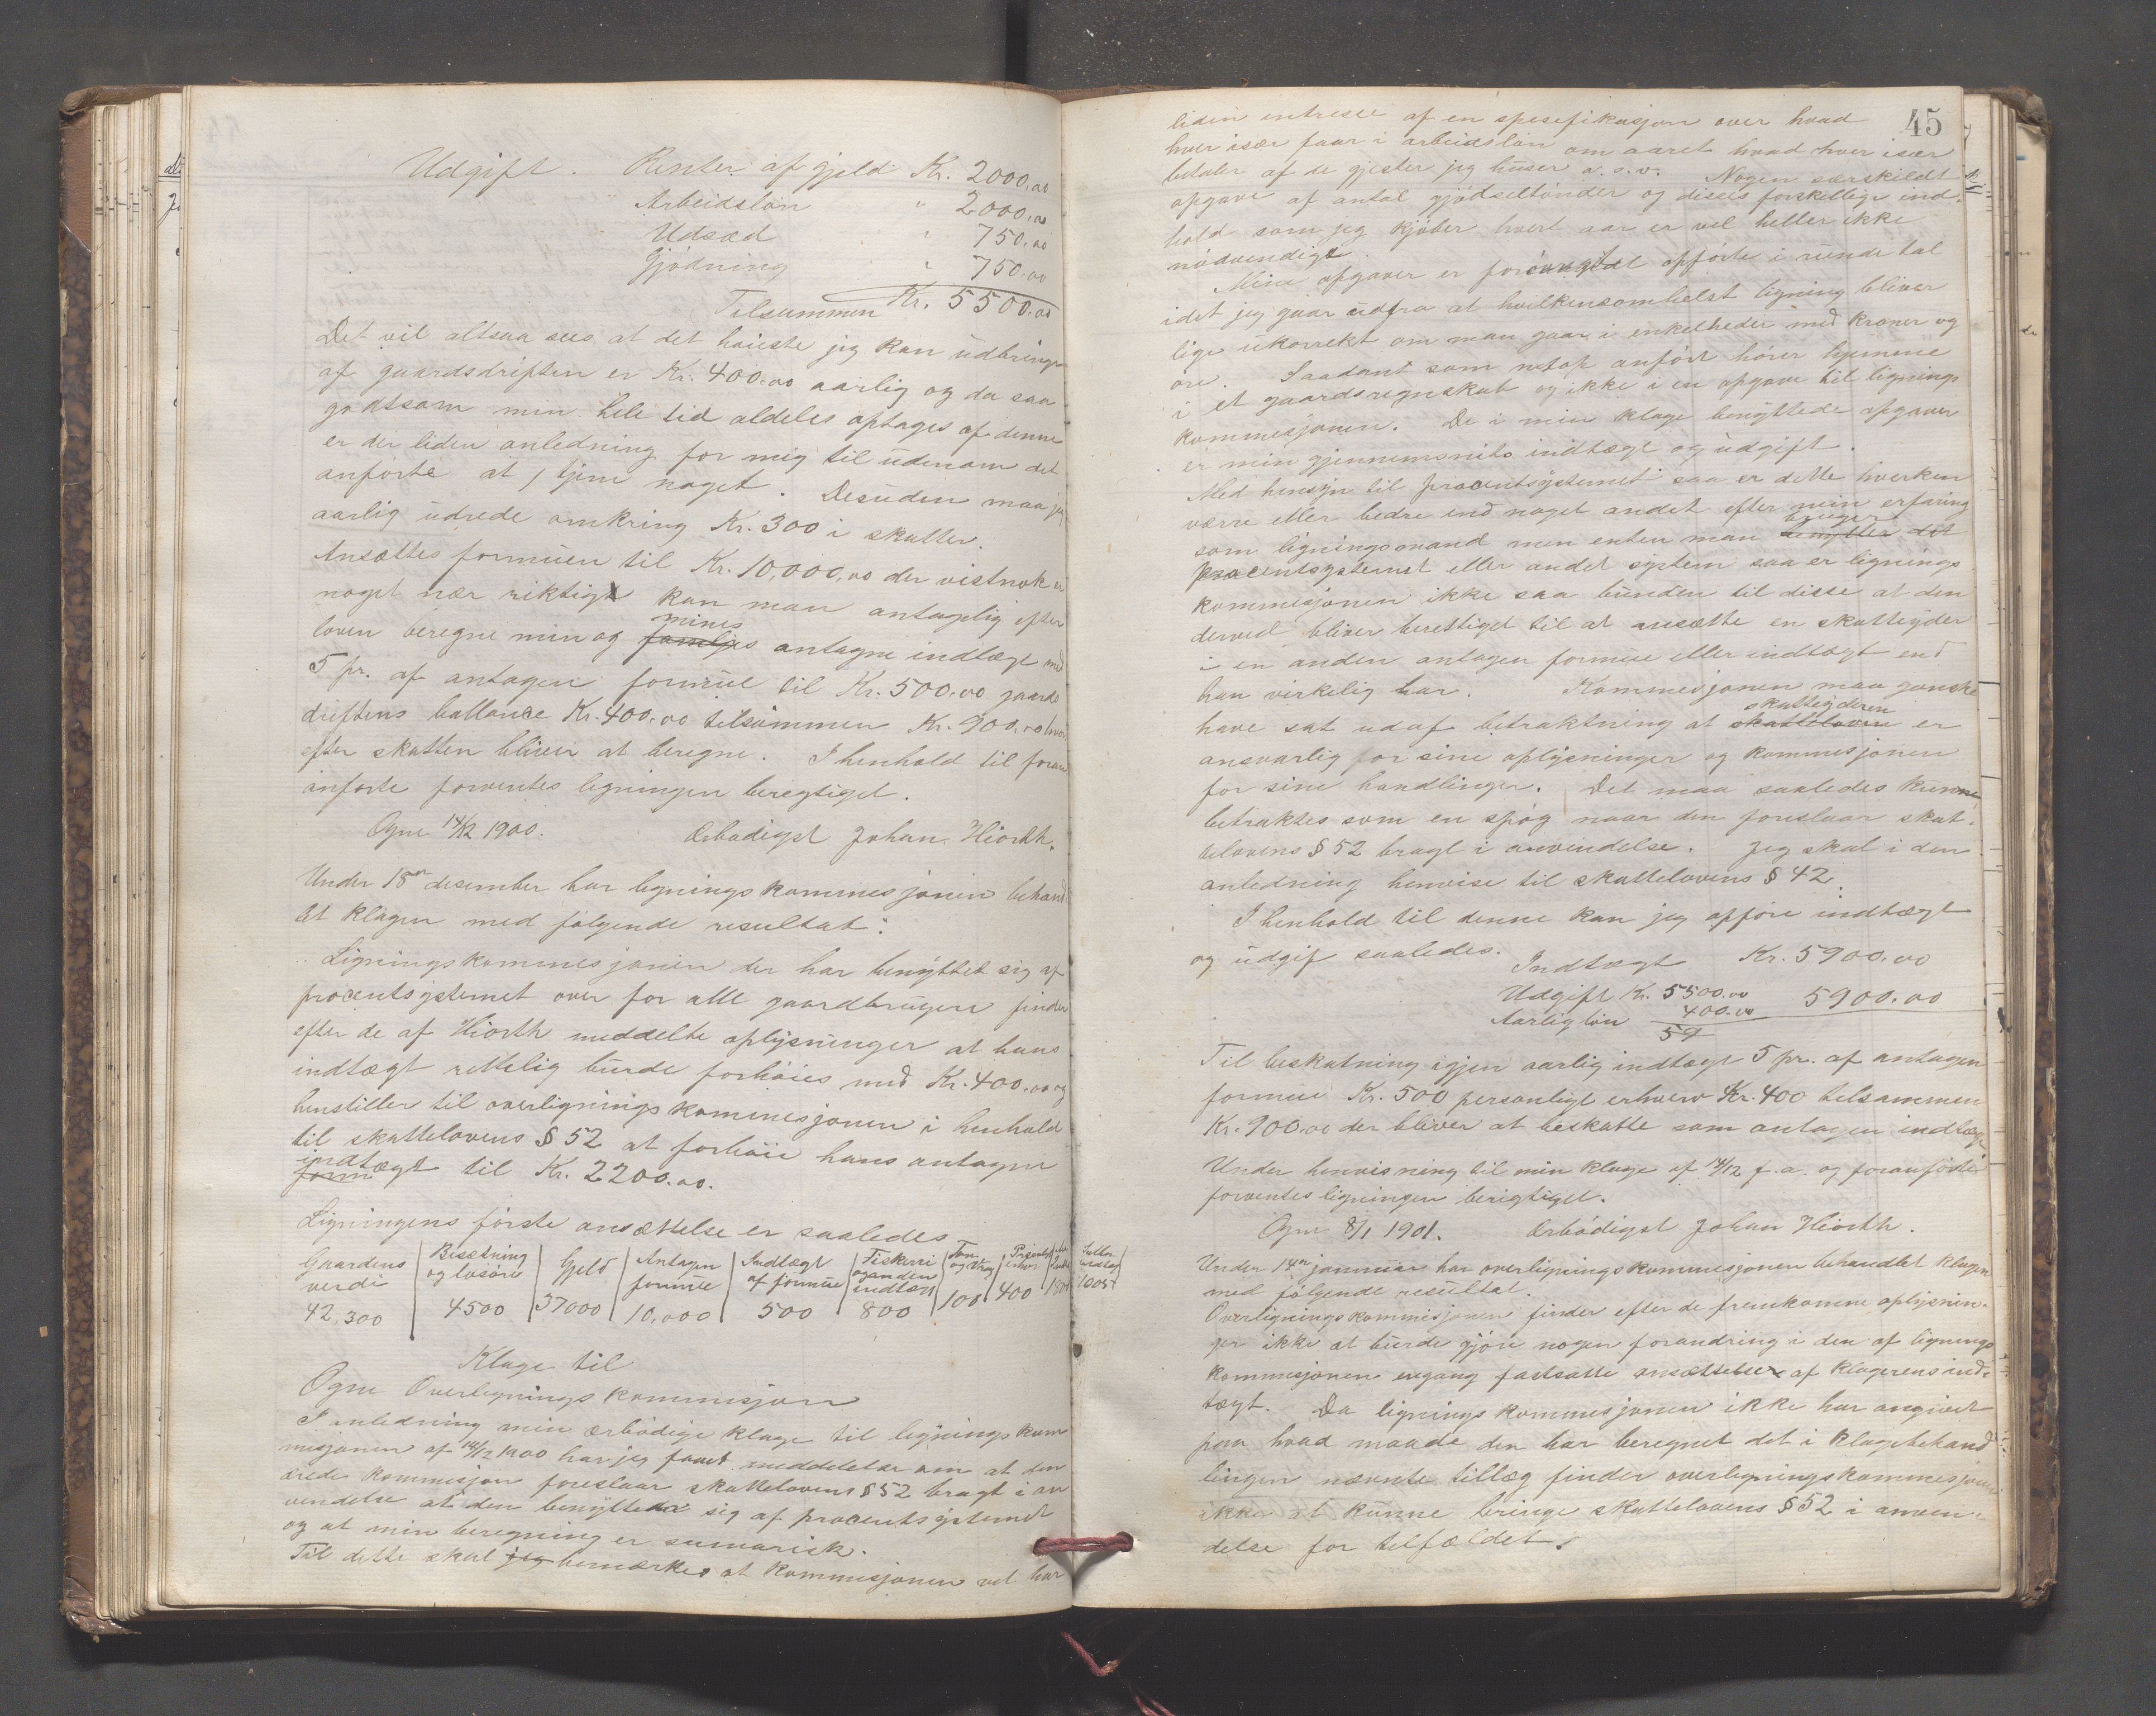 Udgift. Renter af gjeld Kr. 2000,00
Arbeidsløn " 2000,00
Udsæd " 750,00
Gjødning " 750,00
Tilsummen Kr. 5500,00
Det vil altsaa sees at det høieste jeg kan udbringe
af gaardsdriften er Kr. 400,00 aarlig og da saa
godtsom min hele tid aldeles optages af denne
er der liden anledning for mig til udenom det
anførte at tjene noget. Desuden maa jeg
aarlig udrede omkring Kr. 300 i skatter.
Ansættes formuen til Kr. 10,000,00 der vistnok er
noget nær riktigt kan man antagelig efter
mines
loven beregne min og familjes antagne indtægt med
5 pr. af antagen formue til Kr. 500,00 gaards
driftens ballance Kr. 400,00 tilsammen Kr. 900,00 hvor
efter skatten bliver at beregne. I henhold til foran
anførte forventes ligningen beregtiget.
Ogne 14/12 1900. Ærbødigst Johan Hiorth.
Under 18de desember har ligningskommesjonen behand
let klagen med følgende resultat:
Ligningskommesjonen der har benyttet sig af
procentsystemet over for alle gaardbrugere finder
efter de af Hiorth meddelte oplysninger at hans
indtægt rettelig burde forhøies med Kr. 400,00 og
henstiller til overligningskommesjonen i henhold
til skattelovens § 52 at forhøie hans antagne
indtægt
form til Kr. 2200,00.
Ligningens første ansættelse er saaledes
Gaardens verdi | Besætning og løsøre | Gjeld | Antagen formue | Indtægt af formue | Fiskeri og anden indtægt
42,300 | 4500 | 37000 | 10,000 | 500 | 800 | 100 | 400 | 1800 | 1005
Klage til
Ogne Overligningskommisjon
I anledning min ærbødige klage til ligningskom
misjonen af 14/12 1900 har jeg faaet meddelelse om at den
ærede kommisjon foreslaar skattelovens § 52 bragt i an
vendelse at den benytteda sig af procentsystemet
og at min beregning er sumarisk.
Til dette skal jeg bemærkes at kommisjonen vel har
45
liden intresse af en spesefikasjon over hvad
hver især faar i arbeidsløn om aaret hvad hver især
betaler af de gjester jeg huser o.s.v. Nogen særskildt
opgave af antal gjødseltønder og diseels forskellige ind-
hold som jeg kjøber hvert aar er vel heller ikke
nødvendigt.
Mine opgaver er forøvrigt opførte i runde tal
idet jeg gaar udfra at hvilkensomhelst ligning bliver
lige ukorrekt om man gaar i enkelheder med kroner og
øre. Saadant som netop anført hører hjemme
i et gaardsregnskab og ikke i en opgave til lignings
kommesjonen. De i min klage benyttede opgaver
er min gjennemsnits indtægt og udgift.
Med hensyn til procentsystemet saa er dette hverken
værre eller bedre end noget andet efter min erfaring
bruger
som ligningsmand men enten man benytter det
procentsystemet eller andet system saa er lignings
kommesjonen ikke saa bunden til disse at den
derved bliver berettiget til at ansætte en skatteyder
i en anden antagen formue eller indtægt end
han virkelig har. Kommesjonen maa ganske
skatteyderen
have sat udaf betraktning at skatteloven er
ansvarlig for sine oplysninger og kommesjonen
for sine handlinger. Det maa saaledes kunne
betraktes som en spøg naar den foreslaar skat-
telovens § 52 bragt i anvendelse. Jeg skal i den
anledning henvise til skattelovens § 42.
I henhold til denne kan jeg opføre indtægt
og udgift saaledes.
Indtægt Kr. 5900,00
Udgift Kr. 5500,00
Aarlig løn 400,00 5900,00
59
Til beskatning igjen aarlig indtægt 5 pr. af antagen
formue Kr. 500 personligt erhverv Kr. 400 tilsammen
Kr. 900,00 der bliver at beskatte som antagen indtægt
Under henvisning til min klage af 14/12 f.a. og foranførte
forventes ligningen berigtiget.
Ogne 8/1 1901. Ærbødigst Johan Hiorth.
Under 14de januar har overligningskommesjonen behandlet klagen
med følgende resultat.
Overligningskommisjonen finder efter de fremkomne oplysnin-
ger ikke at burde gjøre nogen forandring i den af lignings
kommisjonen engang fastsatte ansættelse af klagerens ind-
tægt. Da ligningskommesjonen ikke har angivet
paa hvad maade den har beregnet det i klagebehand
lingen nævnte tillæg finder overligningskommesjonen
ikke at kunne bringe skattelovens § 52 i anven-
delse for tilfældet.